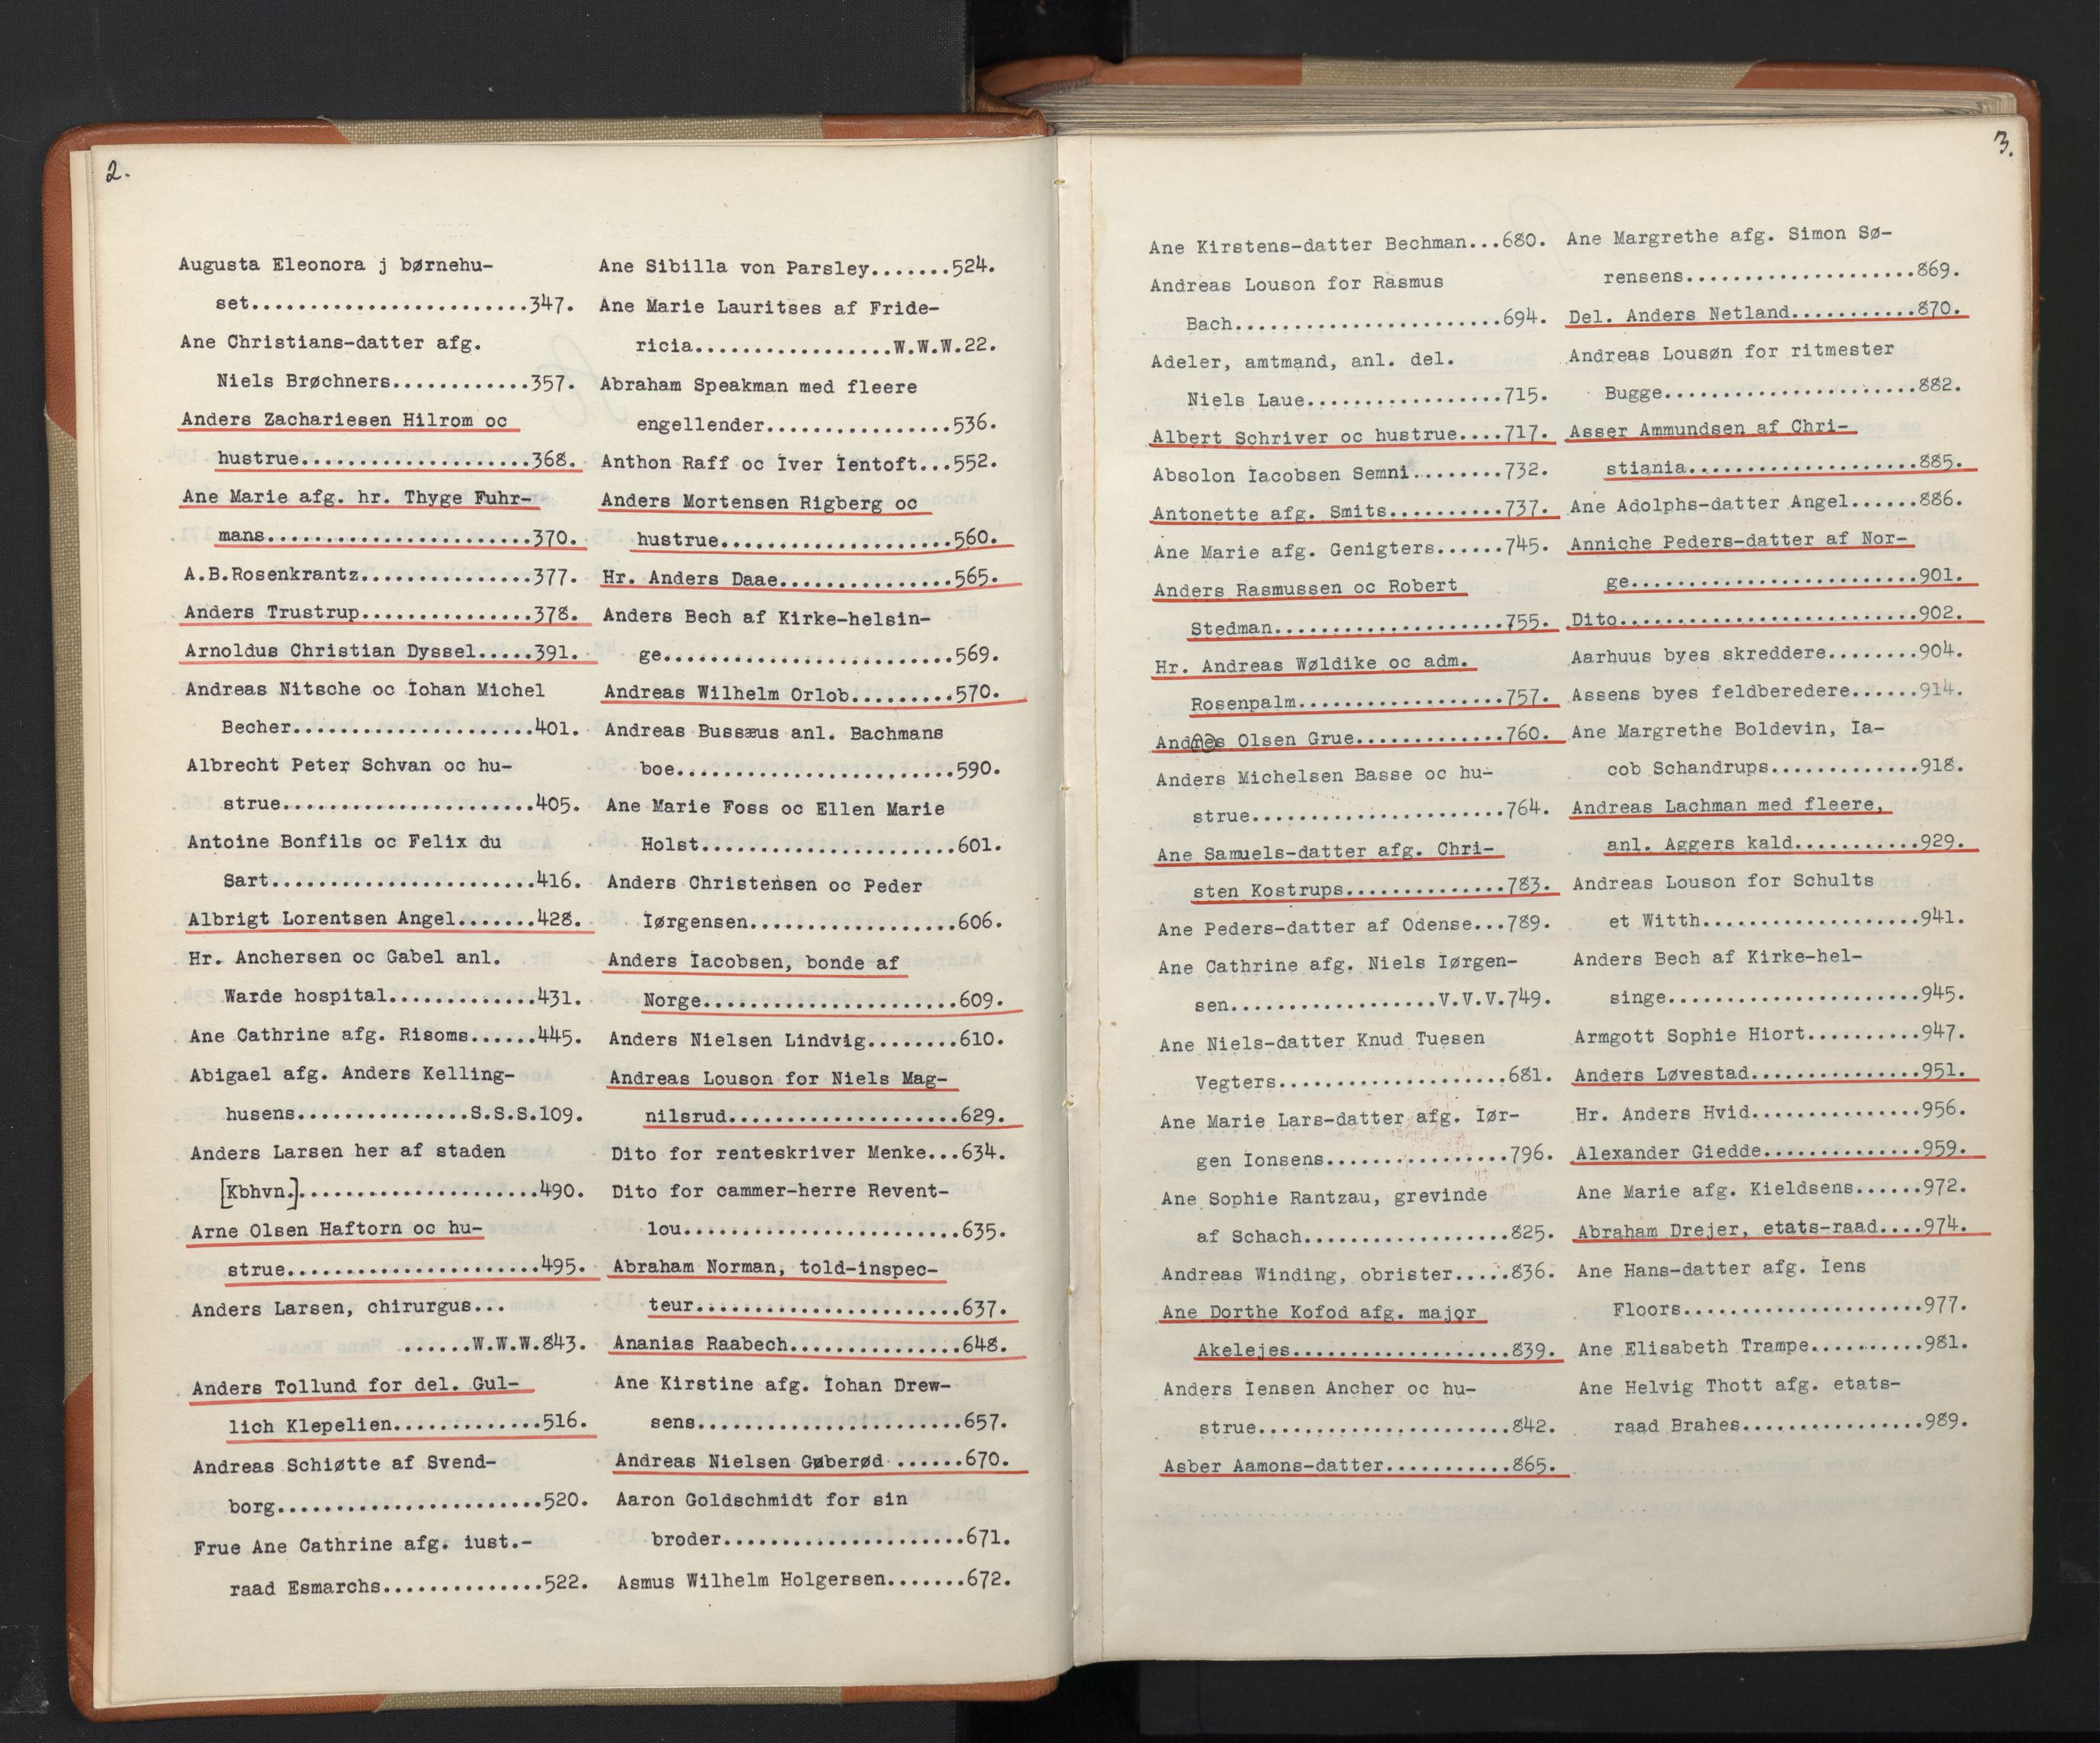 2.
Augusta Eleonora j børnehu-
set.......................347.
Ane Christians-datter afg.
Niels Brøchners............357.
Anders Zachariesen Hilrom oc
hustrue....................368.
Ane Marie afg. hr. Thyge Fuhr-
mans.......................370.
A.B.Rosenkrantz...............377.
Anders Trustrup...............378.
Arnoldus Christian Dyssel.....391.
Andreas Nitsche oc Iohan Michel
Becher.....................401.
Albrecht Peter Schvan oc hu-
strue......................405.
Antoine Bonfils oc Felix du
Sart.......................416.
Albrigt Lorentsen Angel.......428.
Hr. Anchersen oc Gabel anl.
Warde hospital.............431.
Ane Cathrine afg. Risoms......445.
Abigael afg. Anders Kelling-
husens...............S.S.S.109.
Anders Larsen her af staden
[Kbhvn.].....................490.
Arne Olsen Haftorn oc hu-
strue......................495.
Anders Larsen, chirurgus...
......W.W.W.843.
Anders Tollund for del. Gul-
lich Klepelien.............516.
Andreas Schiøtte af Svend-
borg.......................520.
Frue Ane Cathrine afg. iust.-
raad Esmarchs..............522.
Ane Sibilla von Parsley.......524.
Ane Marie Lauritses af Fride-
ricia.................W.W.W.22.
Abraham Speakman med fleere
engellender................536.
Anthon Raff oc Iver Ientoft...552.
Anders Mortensen Rigberg oc
hustrue....................560.
Hr. Anders Daae...............565.
Anders Bech af Kirke-helsin-
ge.........................569.
Andreas Wilhelm Orlob.........570.
Andreas Bussæus anl. Bachmans
boe........................590.
Ane Marie Foss oc Ellen Marie
Holst......................601.
Anders Christensen oc Peder
Iørgensen..................606.
Anders Iacobsen, bonde af
Norge......................609.
Anders Nielsen Lindvig........610.
Andreas Louson for Niels Mag-
nilsrud....................629.
Dito for renteskriver Menke...634.
Dito for cammer-herre Revent-
lou........................635.
Abraham Norman, told-inspec-
teur.......................637.
Ananias Raabech...............648.
Ane Kirstine afg. Iohan Drew-
sens.......................657.
Andreas Nielsen Gøberød ......670.
Aaron Goldschmidt for sin
broder.....................671.
Asmus Wilhelm Holgersen.......672.
3.
Ane Kirstens-datter Bechman...680.
Andreas Louson for Rasmus
Bach.......................694.
Adeler, amtmand, anl. del.
Niels Laue.................715.
Albert Schriver oc hustrue....717.
Absolon Iacobsen Semni........732.
Antonette afg. Smits..........737.
Ane Marie afg. Genigters......745.
Anders Rasmussen oc Robert
Stedman....................755.
Hr. Andreas Wøldike oc adm.
Rosenpalm..................757.
Anders Olsen Grue.............760.
Anders Michelsen Basse oc hu-
strue......................764.
Ane Samuels-datter afg. Chri-
sten Kostrups..............783.
Ane Peders-datter af Odense...789.
Ane Cathrine afg. Niels Iørgen-
sen..................V.V.V.749.
Ane Niels-datter Knud Tuesen
Vegters....................681.
Ane Marie Lars-datter afg. Iør-
gen Ionsens................796.
Ane Sophie Rantzau, grevinde
af Schach..................825.
Andreas Winding, obrister.....836.
Ane Dorthe Kofod afg. major
Akelejes...................839.
Anders Iensen Ancher oc hu-
strue......................842.
Asber Aamons-datter...........865.
Ane Margrethe afg. Simon Sø-
rensens....................869.
Del. Anders Netland...........870.
Andreas Lousøn for ritmester
Bugge......................882.
Asser Ammundsen af Chri-
stiania....................885.
Ane Adolphs-datter Angel......886.
Anniche Peders-datter af Nor-
ge.........................901.
Dito..........................902.
Aarhuus byes skreddere........904.
Assens byes feldberedere......914.
Ane Margrethe Boldevin, Ia-
cob Schandrups.............918.
Andreas Lachman med fleere,
anl. Aggers kald...........929.
Andreas Louson for Schults
et Witth...................941.
Anders Bech af Kirke-hel-
singe......................945.
Armgott Sophie Hiort..........947.
Anders Løvestad...............951.
Hr. Anders Hvid...............956.
Alexander Giedde..............959.
Ane Marie afg. Kieldsens......972.
Abraham Drejer, etats-raad....974.
Ane Hans-datter afg. Iens
Floors.....................977.
Ane Elisabeth Trampe..........981.
Ane Helvig Thott afg. etats-
raad Brahes................989.